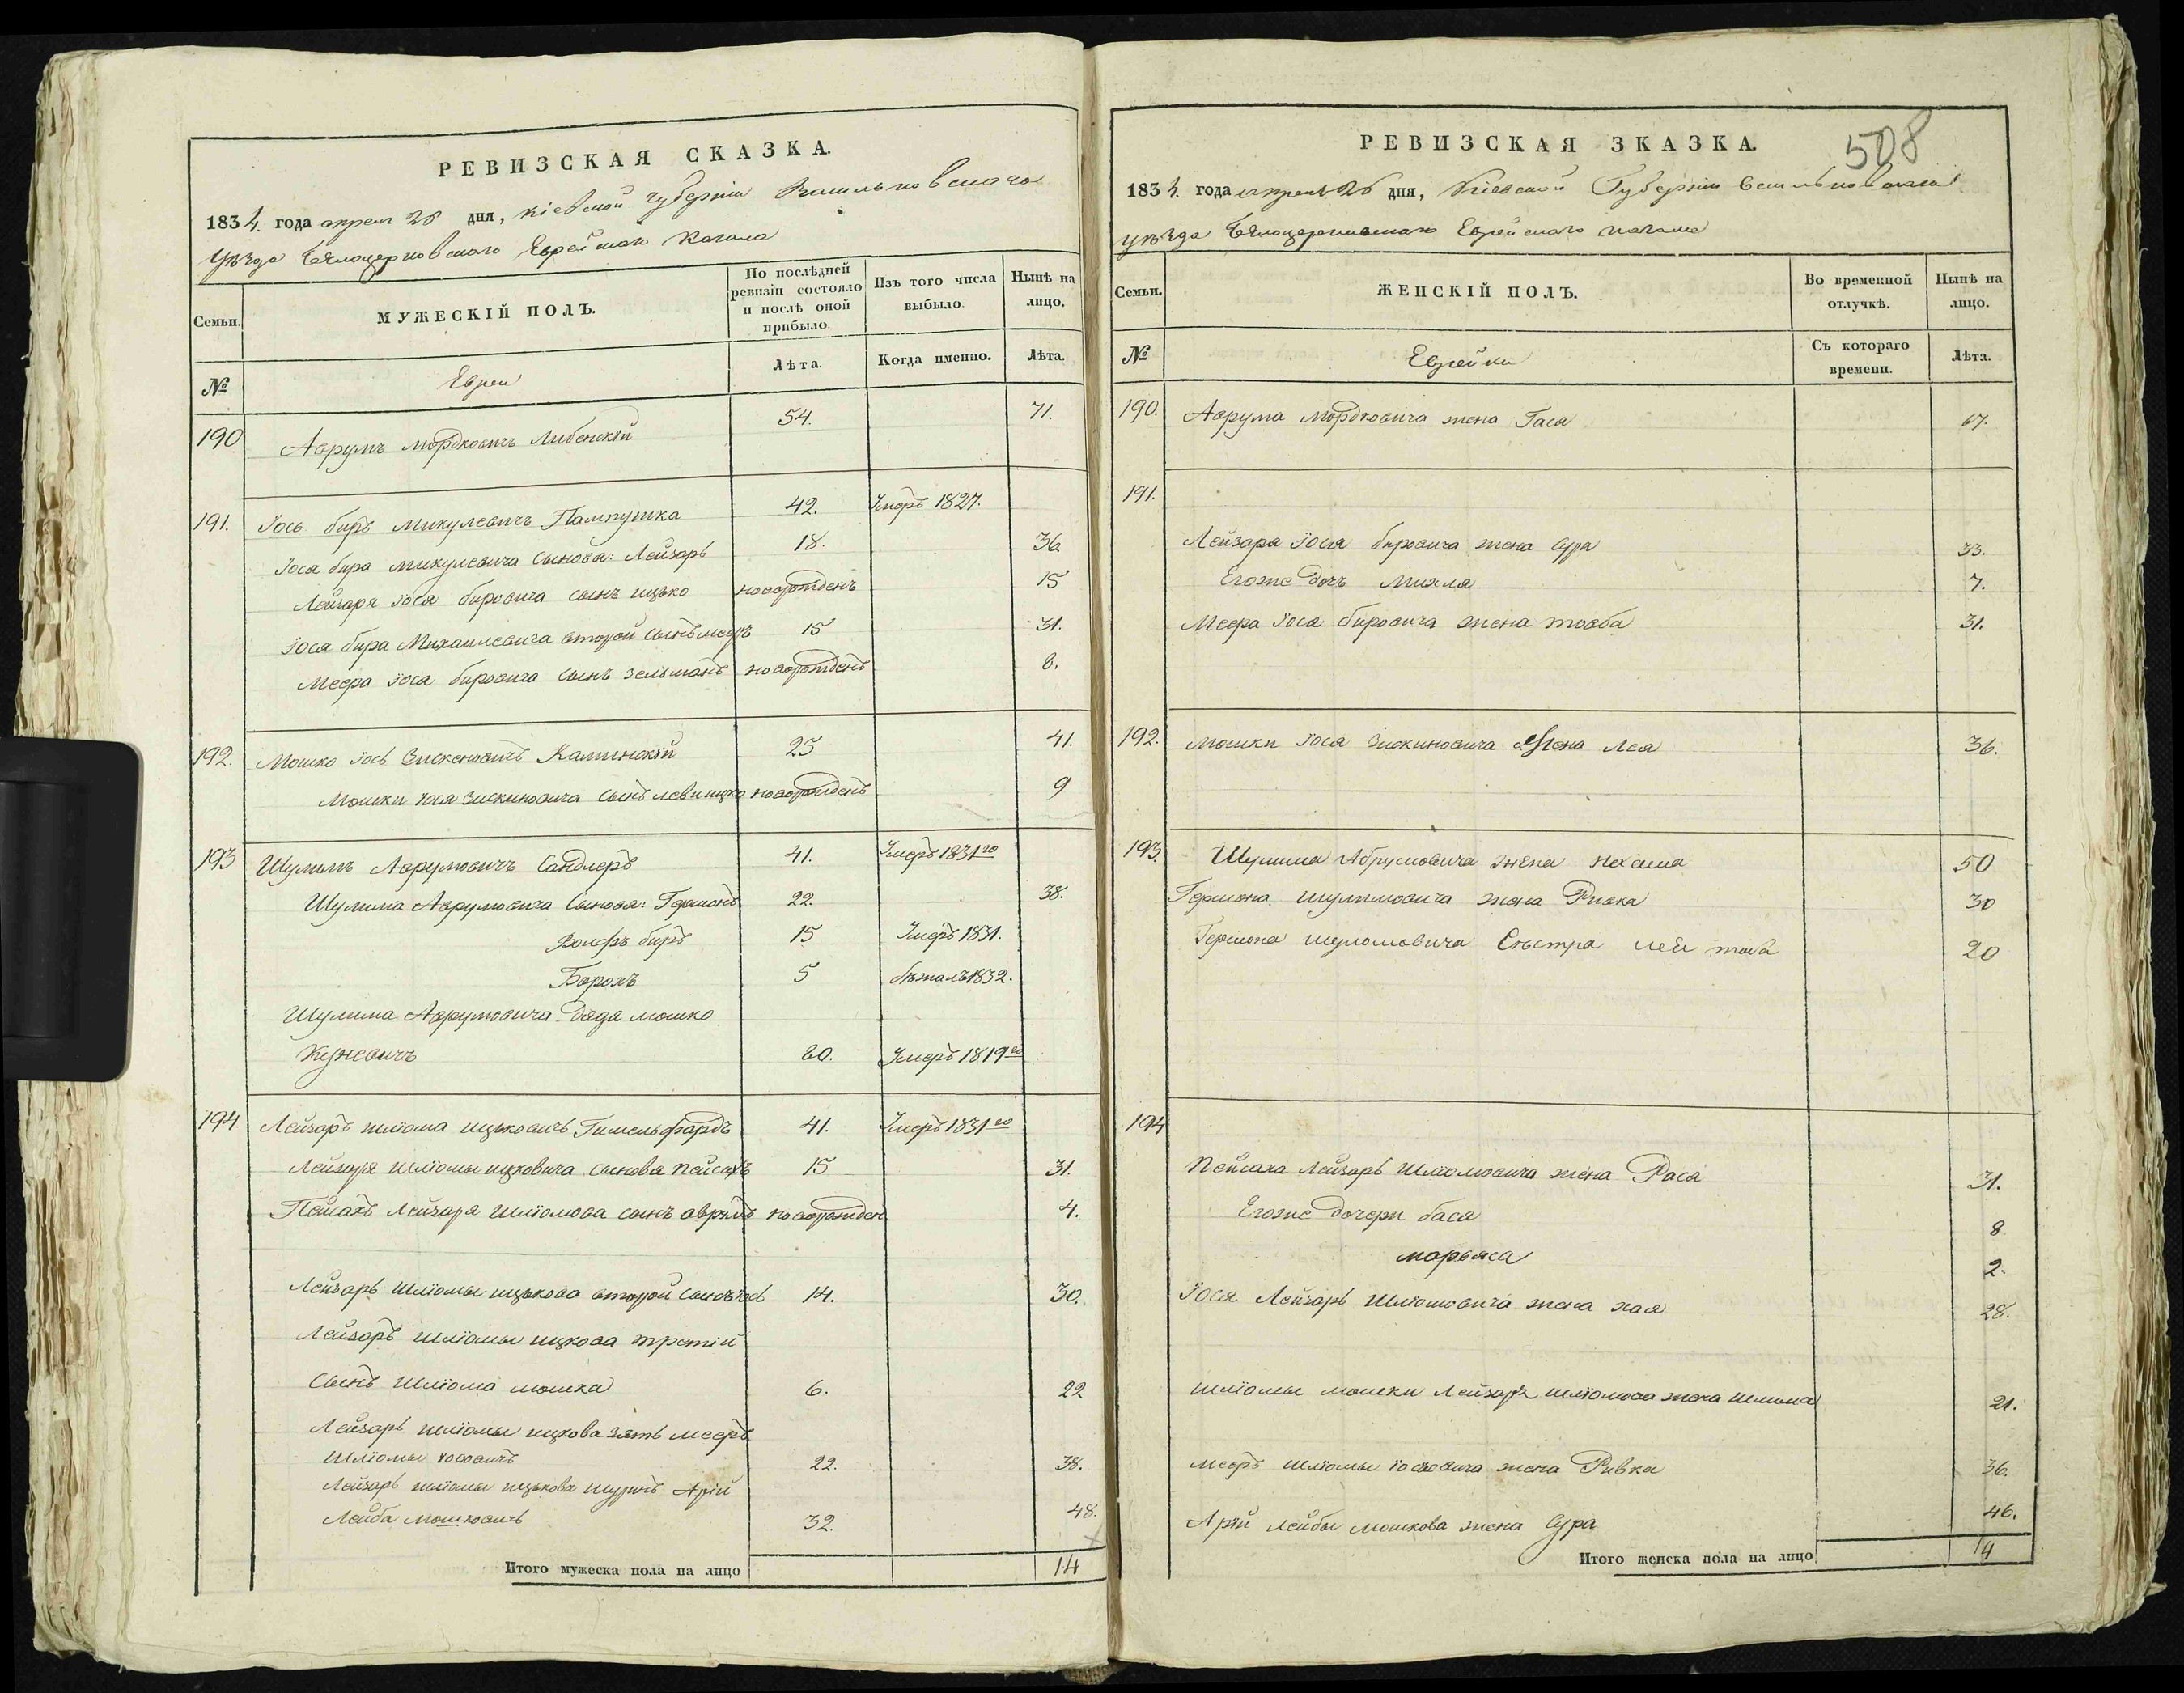 РЕВИЗСКАЯ СКАЗКА.
1834. года апреля 28 дня, кіевской губерніи Васильковскаго
уѣзда Бѣлоцерковскаго Еврейскаго Кагала
Семьи.
МУЖЕСКІЙ ПОЛЪ.
По послѣдней ревизіи состояло и послѣ оной прибыло.
Изъ того числа выбыло.
Нынѣ на лицо.
№
Евреи
Лѣта.
Когда именно.
Лѣта.
190 Аврумъ Мордковичъ Либенскій 54. 71.
191. Іось биръ Микулевичъ Пампушка 42. Умеръ 1827.
Іося бира Микулевича Сыновья: Лейзоръ 18. 36.
Лейзаря Іося бировича сынъ ицько новорожденъ 15
Іося бира Михаилевича второй сынъ мееръ 15 31.
Меера Іося бировича сынъ зельманъ новорожденъ 8.
192. Мошко Іось Зискеновичъ Калинскій 25 41.
Мошки Іося Зискиновича сынъ леви ицко новорожденъ 9
193 Шулимъ Аврумовичъ Сандлеръ 41. Умеръ 1831го
Шулима Аврумовича Сыновья: Гершонъ 22. 38.
Волфъ биръ 15 Умеръ 1831.
Борохъ 5 бѣжалъ 1832.
Шулима Аврумовича дядя мошко
Куневичъ 60. Умеръ 1819го
194. Лейзоръ шліома ицьковичъ Гимельфарбъ 41. Умеръ 1831го
Лейзоря Шліомы ицковича сыновья пейсахъ 15 31.
Пейсахъ Лейзаря Шліомова сынъ аврумъ новорожден 4.
Лейзаръ Шліомы ицькова второй сынъ іось 14. 30.
Лейзоръ шліомы ицкова третій
Сынъ Шліома мошка 6. 22
Лейзаръ шліомы ицкова зять меоръ
Шліомы іосовичъ 22. 38.
Лейзаръ шліомы ицькова шуринъ Арій
Лейба мошковичъ 32. 48.
Итого мужеска пола на лицо 14
РЕВИЗСКАЯ ЗКАЗКА.
508
1834. года апреля 26 дня, Кіевской Губерніи Васильковскаго
уѣзда Бѣлоцерковскаго Еврейскаго кагала
Семьи.
ЖЕНСКІЙ ПОЛЪ.
Во временной отлучкѣ.
Нынѣ на лицо.
№
Еврейки
Съ котораго времени.
Лѣта.
190. Аврума Мордковича жена Гася 67.
191.
Лейзаря Іося бировича жена Сура 33.
Егоже дочь Михля 7.
Меера Іося бировича жена товба 31.
192. Мошки Іося Зискиновича жена Лея 36.
193. Шулима Абрумовича жена нехама 50
Гершона шулимовича жена Ривка 30
Гершона шуломовича Сѣстра леи това 20
194
Пейсаха Лейзаръ Шліомовича жена Рася 31.
Егоже дочери бася 8
марьяся 2.
Іося Лейзаръ Шліомовича жена хая 28.
Шліомы мошки Лейзаря шліомова жена 21.
Меоръ шліомы іосовича жена Ривка 36.
Арій лейбы мошкова жена Сура 46.
Итого женска пола на лицо 14